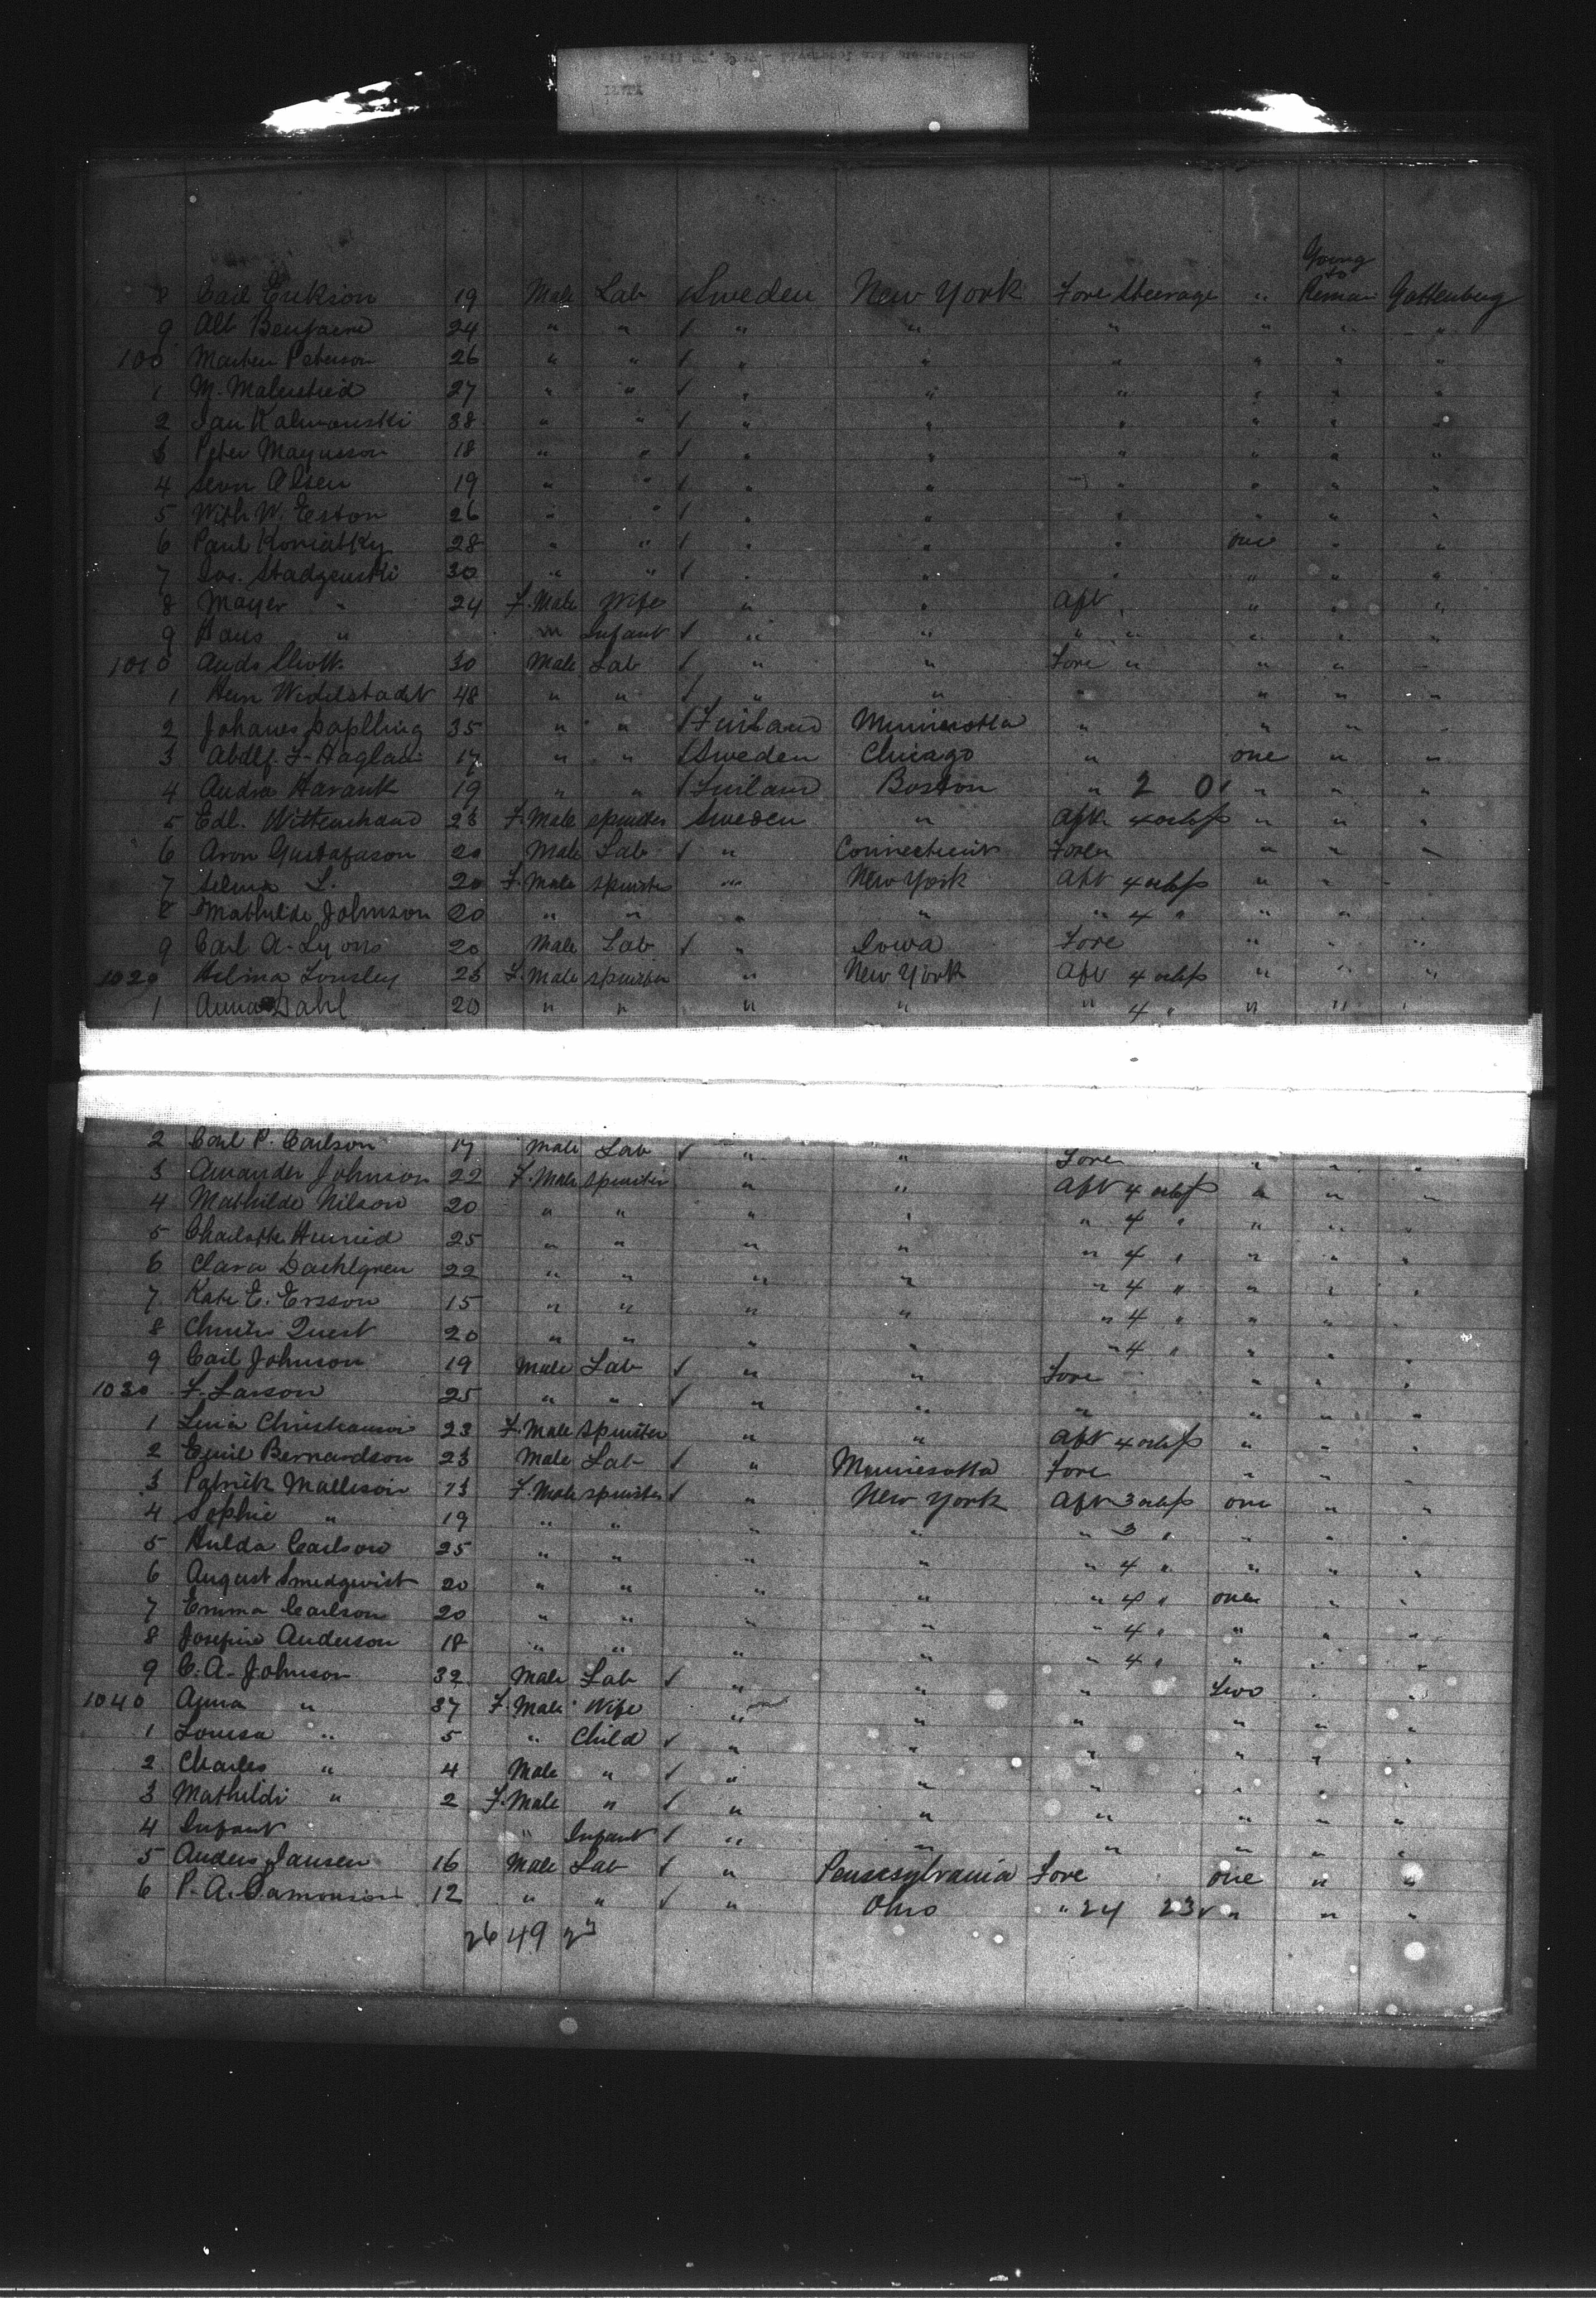 Going
to
8 Carl Erikson 19 Male Lab / Sweden New York Fore Steerage " Remain Gottenberg
9 Alb Benjamd 24 " " / " " " " " "
100 Marten Peterson 26 " " / " " " " " "
1 M. Malmstrid 27 " " / " " " " " "
2 Jan Kalmanski 38 " " / " " " " " "
3 Peter Magnusson 18 " " / " " " " " "
4 Sven Olsen 19 " " / " " " " " "
5 Wilh W. Eston 26 " " / " " " " " "
6 Paul Koniatky 28 " " / " " " one " "
7 Jos. Stadzenski 30 " " / " " " " " "
8 Mayer " 24 F. Male Wife " " Aft " " " "
9 Hans " m Infant / " " " " " " "
1010 Ands Skott 30 Male Lab / " " Fore " " " "
1 Hem Wedelstadt 48 " " / " " " " " "
2 Johanes Saplling 35 " " / Finland Minnesotta " " " "
3 Abdlf. F. Haglan 17 " " / Sweden Chicago " one " "
4 Andra Havank 19 " " / Finland Boston " 2 0 / " " "
5 Edl. Wittenhand 23 F. Male spinster Sweden " Aft 4 " " "
6 Aron Gustafason 20 Male Lab / " Connecticut Fore " " " "
7 Selma L. 20 F. Male spinster " New York Aft 4 " " "
8 Mathilde Johnson 20 " " " " " 4 " " " "
9 Carl A. Lyons 20 Male Lab / " Iowa Fore " " "
1020 Helma Lonsley 23 F. Male spinster " New York Aft 4 " " "
1 Anna Dahl 20 " " " " " 4 " " " "
2 Carl P. Carlson 17 Male Lab / " " Fore " " "
3 Amander Johnson 22 F. Male spinster " " Aft 4 " " "
4 Mathilde Nilson 20 " " " " " 4 " " " "
5 Charlotte Hennid 25 " " " " " 4 " " " "
6 Clara Daehlgren 22 " " " " " 4 " " " "
7 Kate E. Ersson 15 " " " " " 4 " " " "
8 Christe Quest 20 " " " " " 4 " " " "
9 Carl Johnson 19 Male Lab / " " Fore " " "
1030 F. Larson 25 " " / " " " " " "
1 Lina Christianson 23 F. Male Spinster " " Aft 4 " " "
2 Emil Bernardson 23 Male Lab / " Minnesotta Fore " " "
3 Patrik Mallison 23 F. Male spinster / " New York Aft 3 one " "
4 Sophie " 19 " " " " " 3 " " " "
5 Hulda Carlson 25 " " " " " 4 " " " "
6 August Smedqwist 20 " " " " " 4 " one " "
7 Emma Carlson 20 " " " " " 4 " " " "
8 Josefine Anderson 18 " " " " " 4 " " " "
9 C. A. Johnson 32 Male Lab / " " " two " "
1040 Anna " 37 F. Male Wife " " " " " "
1 Louisa " 5 " Child / " " " " " "
2 Charles " 4 Male " / " " " " " "
3 Mathildi " 2 F. Male " / " " " " " "
4 Infant " Infant / " " " " " "
5 Anders Jansen 16 Male Lab / " Pensesylvania Fore one " "
6 P. A. Samonson 12 " " / " Ohio " 24 23 / " " "
26 49 27